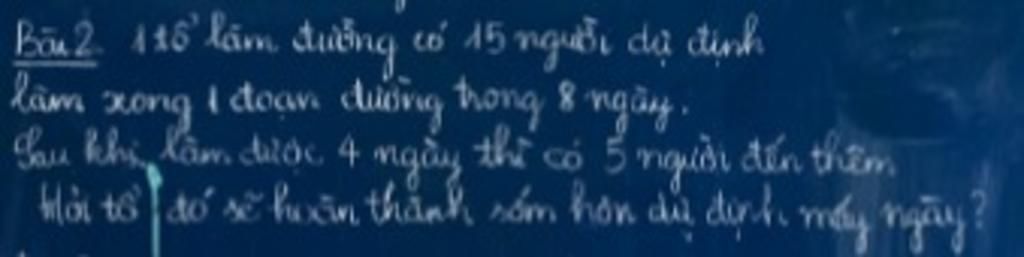 Bài 2 1 tổ làm đường có 15 người dự định
làm xong 1 đoạn đường trong 8 ngày.
Sau khi làm được 4 ngày thì có 5 người đến thêm
Hỏi tổ đó sẽ hoàn thành sớm hơn dự định mấy ngày?